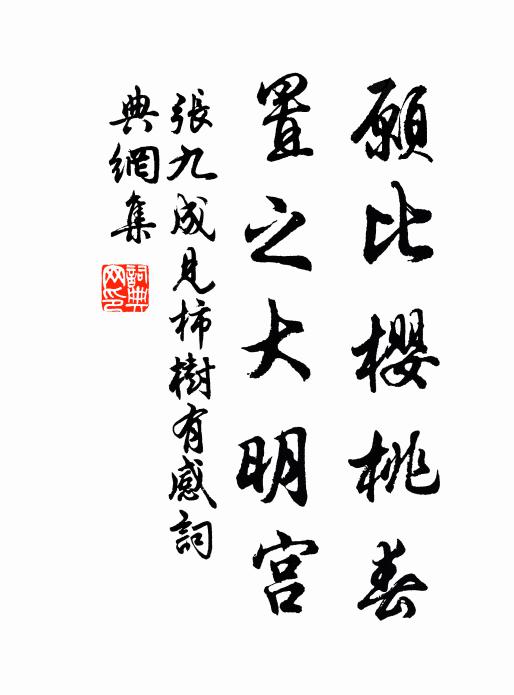 願比櫻桃春
置之大明宮
張九成見柿樹有感詞
典網集
詞典網印